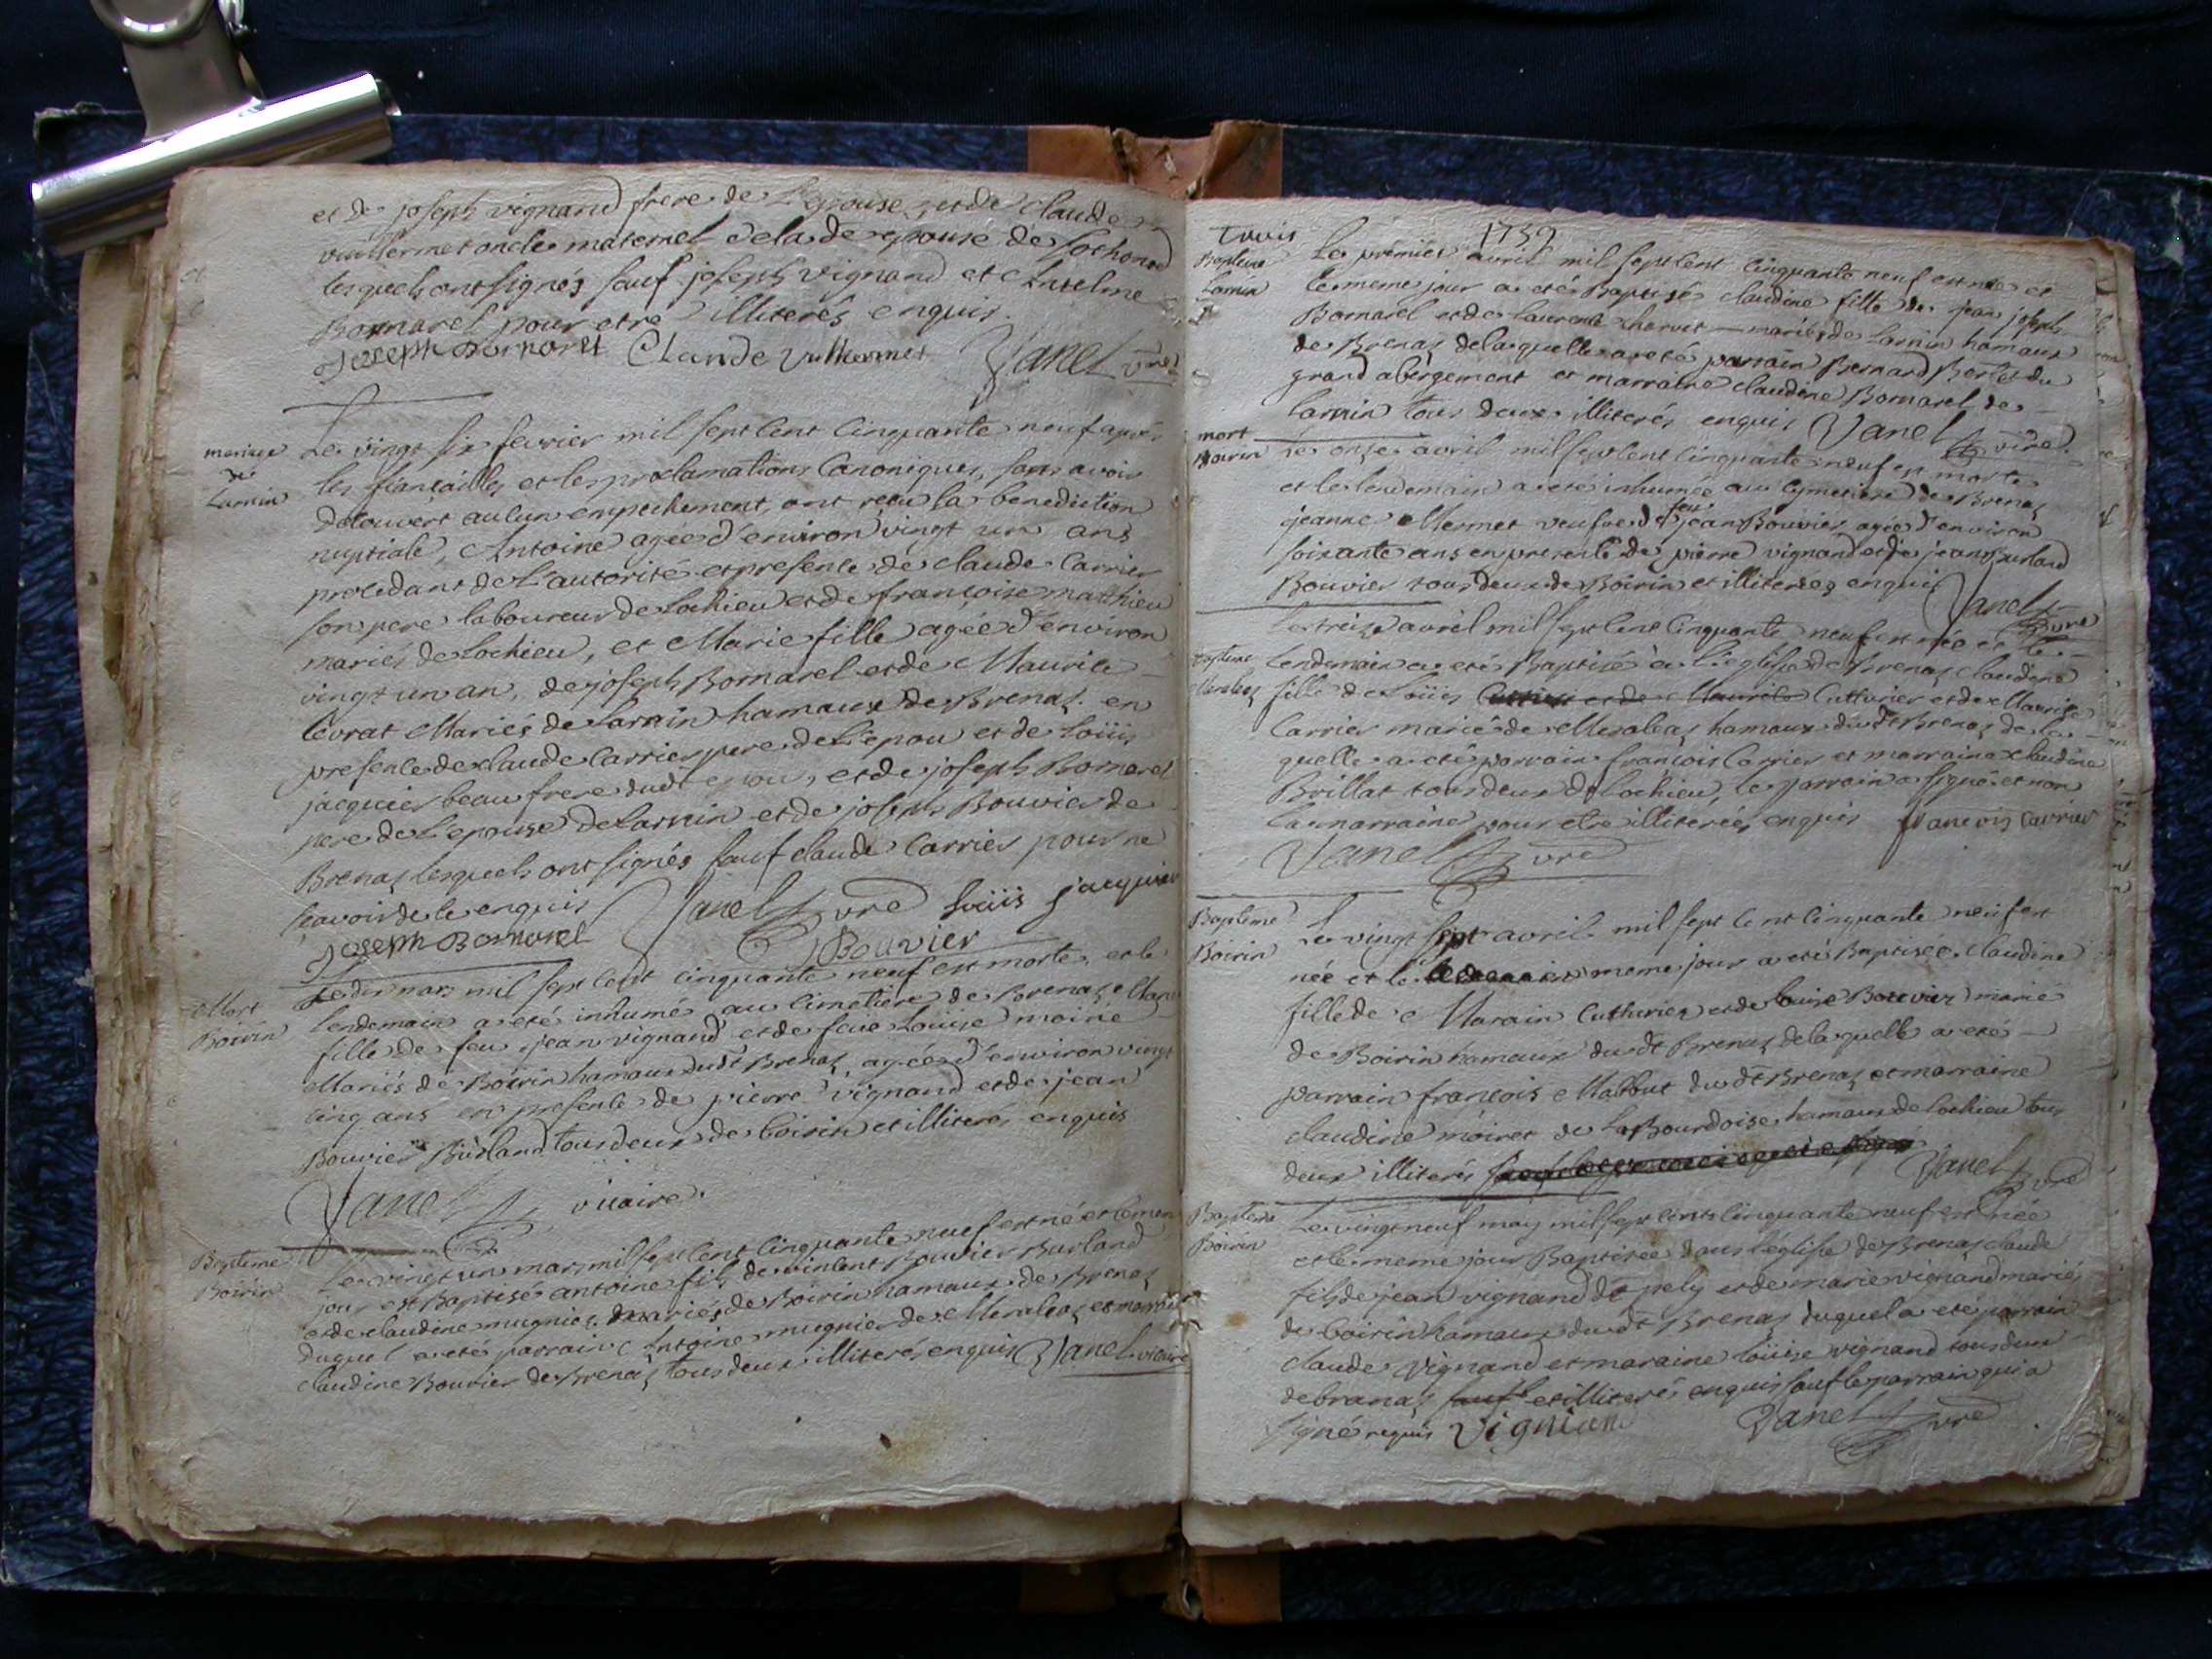 et de joseph vignand frere de L'epouse, et de Claude
vuillermet oncle maternel de la de epouse de Lochonod
lesquels ont signés sauf joseph vignand et Antelme
Bornarel pour etre illiterés enquis.
Joseph Bornarel Claude Vullhermet Vanel vre
mariage
de
Larnin
Le vingt six fevrier mil sept cent cinquante neuf aprés
les fiançailles et les proclamations Canoniques, sans avoir
decouvert aucun empechement, ont reçu la benediction
nuptiale, Antoine agée d'environ vingt un ans
procedant de L'autorité et presence de claude Carrier
son pere laboureur de Lochieu et de françoise matthieu
mariés de Lochieu, et Marie fille agée d'environ
vingt un an, de joseph Bornarel et de Maurice
Levrat Mariés de Larnin hamaux de Brenaz en
presence de claude Carrier pere de L'epou et de Loüis
jacquier beau frere dudt epou, et de joseph Bornarel
pere de L'epouse de Larnin et de joseph Bouvier de
Brenaz lesquels ont signés sauf claude Carrier pour ne
sçavoir de le enquis Vanel vre Loüis jacquier
Joseph Bornarel Bouvier
Mort
Boirin
Le dix mars mil sept cent cinquante neuf est morte, et le
lendemain a eté inhumé au cimetiere de Brenaz Marie
fille de feu jean vignand et de feüe Loüise moine
Mariés de Boirin hamaux dudt Brenaz, agée d'environ vingt
cinq ans en presence de pierre vignand et de jean
Bouvier Burland tous deux de boirin et illiterés enquis
Vanel vicaire.
Bapteme
Boirin
Le vingt un mars mil sept cent cinquante neuf est né et le meme
jour est Baptisés antoine fils de vincent Bouvier Burland
et de claudine mugnier mariés de Boirin hamaux de Brenaz
duquel a eté parrain Antoine mugnier de Meraleaz et marraine
claudine Bouvier de Brenaz tous deux illiterés enquis Vanel vicaire
trois
1759
Bapteme
Larnin
Le premier avril mil sept cent cinquante neuf est née et
le meme jour a eté Baptisés claudine fille de jean joseph
Bornarel et de laurence charvet mariés de Larnin hamaux
de Brenaz de laquelle a eté parrain Bernard Berlet du
grand abergement et marraine claudine Bornarel de
larnin tous deux illiterés enquis Vanel vire
mort
Boirin
Le onze avril mil sept cent cinquante neuf est morte
et le lendemain a eté inhumée au cymetiere de Brenaz
jeanne Mermet veufve de feu jean Bouvier agée d'environ
soixante ans en presence de pierre vignand et de jean Burland
Bouvier tous deux de Boirin et illiterés enquis Vanel vre
Bapteme
Meraleaz
Le treize avril mil sept cent cinquante neuf est née et le
lendemain a eté Baptisé à l'eglise de Brenaz claudine
fille de Loüis Cutturier et de Maurice
Carrier mariés de Meraleaz hamaux dudt Brenaz de la
quelle a eté parrain françois Carrier et marraine claudine
Brillat tous deux de Lochieu, le parrain a signé et non
la marraine pour etre illiterée, enquis francois Carrier
Vanel vre
Bapteme
Boirin
Le vingt sept avril mil sept cent cinquante neuf est
née et le meme jour a eté Baptisée claudine
fille de Marain Cutturier et de louise Bouvier marié
de Boirin hamaux dudt Brenaz de laquelle a eté
parrain françois Mabbut dudt Brenaz et marraine
claudine moiret de La Bourdoise hamaux de Lochieu tous
deux illiterés Vanel vre
Bapteme
Boirin
Le vingt neuf may mil sept cents cinquante neuf est née
et le meme jour Baptisée dans l'église de Brenaz claude
fils de jean vignand dt pely et de marie vignand mariés
de boirin hamaux dudt Brenaz duquel a eté parrain
claude vignand et maraine loüise vignand tous deux
de branaz sauf et illiterés enquis sauf le parrain qui a
signé requis Vignian Vanel vre